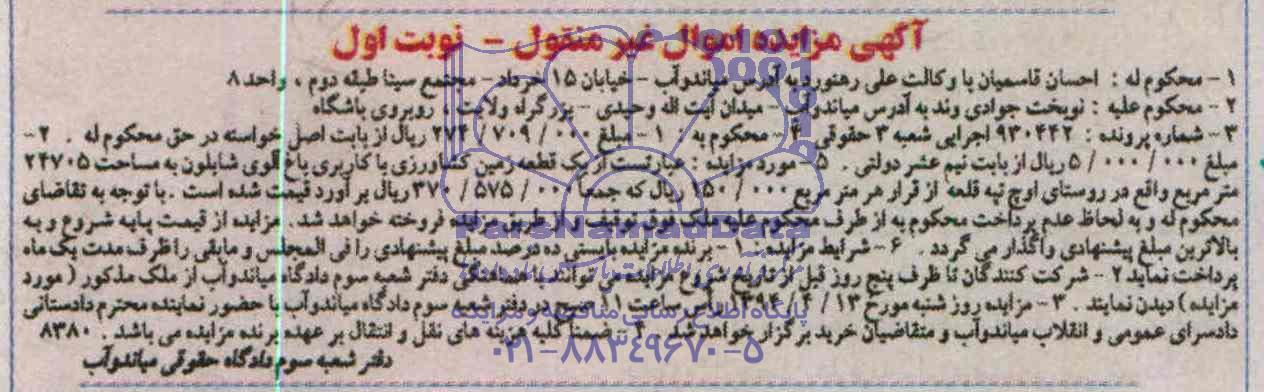 آگهی مزایده اموال غیر منقول - نوبت اول
۱- محکوم له : احسان قاسمیان با وکالت علی رهنورد به آدرس میاندوآب - خیابان ۱۵ خرداد - مجتمع سینا طبقه دوم ، واحد ۸
۲- محکوم علیه : نوبخت جوادی وند به آدرس میاندوآب - میدان آیت اله وحیدی - بزرگراه ولایت - روبروی باشگاه
۳- شماره پرونده : ۹۳۰۴۴۲ اجرایی شعبه ۳ حقوقی ۴- محکوم به : ۱- مبلغ ۲۷۴/۷۰۹/۰۰۰ ریال از بابت اصل خواسته در حق محکوم له . ۲-
مبلغ ۵/۰۰۰/۰۰۰ ریال از بابت نیم عشر دولتی . ۵- مورد مزایده : عبارتست از یک قطعه زمین کشاورزی با کاربری باغ آلوی شابلون به مساحت ۲۴۷۰۵
متر مربع واقع در روستای اوچ تپه قلعه از قرار هر متر مربع ۱۵۰/۰۰۰ ریال که جمعا ۳۷۰/۵۷۵/۰۰۰ ریال بر آورد قیمت شده است . با توجه به تقاضای
محکوم له و به لحاظ عدم پرداخت محکوم به از طرف محکوم علیه ملک فوق توقیف و از طریق مزایده فروخته خواهد شد. مزایده از قیمت پایه شروع و به
بالاترین مبلغ پیشنهادی واگذار می گردد . ۶- شرایط مزایده : ۱- برنده مزایده بایستی ده درصد مبلغ پیشنهادی را فی المجلس و مابقی را ظرف مدت یک ماه
پرداخت نماید ۲- شرکت کنندگان تا ظرف پنج روز قبل از تاریخ شروع مزایده می توانند با هماهنگی دفتر شعبه سوم دادگاه میاندوآب از ملک مذکور ( مورد
مزایده ) دیدن نمایند . ۳- مزایده روز شنبه مورخ ۱۳/۴/۱۳۹۴ راس ساعت ۱۱ صبح در دفتر شعبه سوم دادگاه میاندوآب با حضور نماینده محترم دادستانی
دادسرای عمومی و انقلاب میاندوآب و متقاضیان خرید برگزار خواهد شد. ۴- ضمنا کلیه هزینه های نقل و انتقال بر عهده برنده مزایده می باشد . ۸۳۸۰
دفتر شعبه سوم دادگاه حقوقی میاندوآب
ParsNamadData
پایگاه اطلاع رسانی مناقصه و مزایده
۰۲۱-۸۸۳۴۹۶۷۰-۵